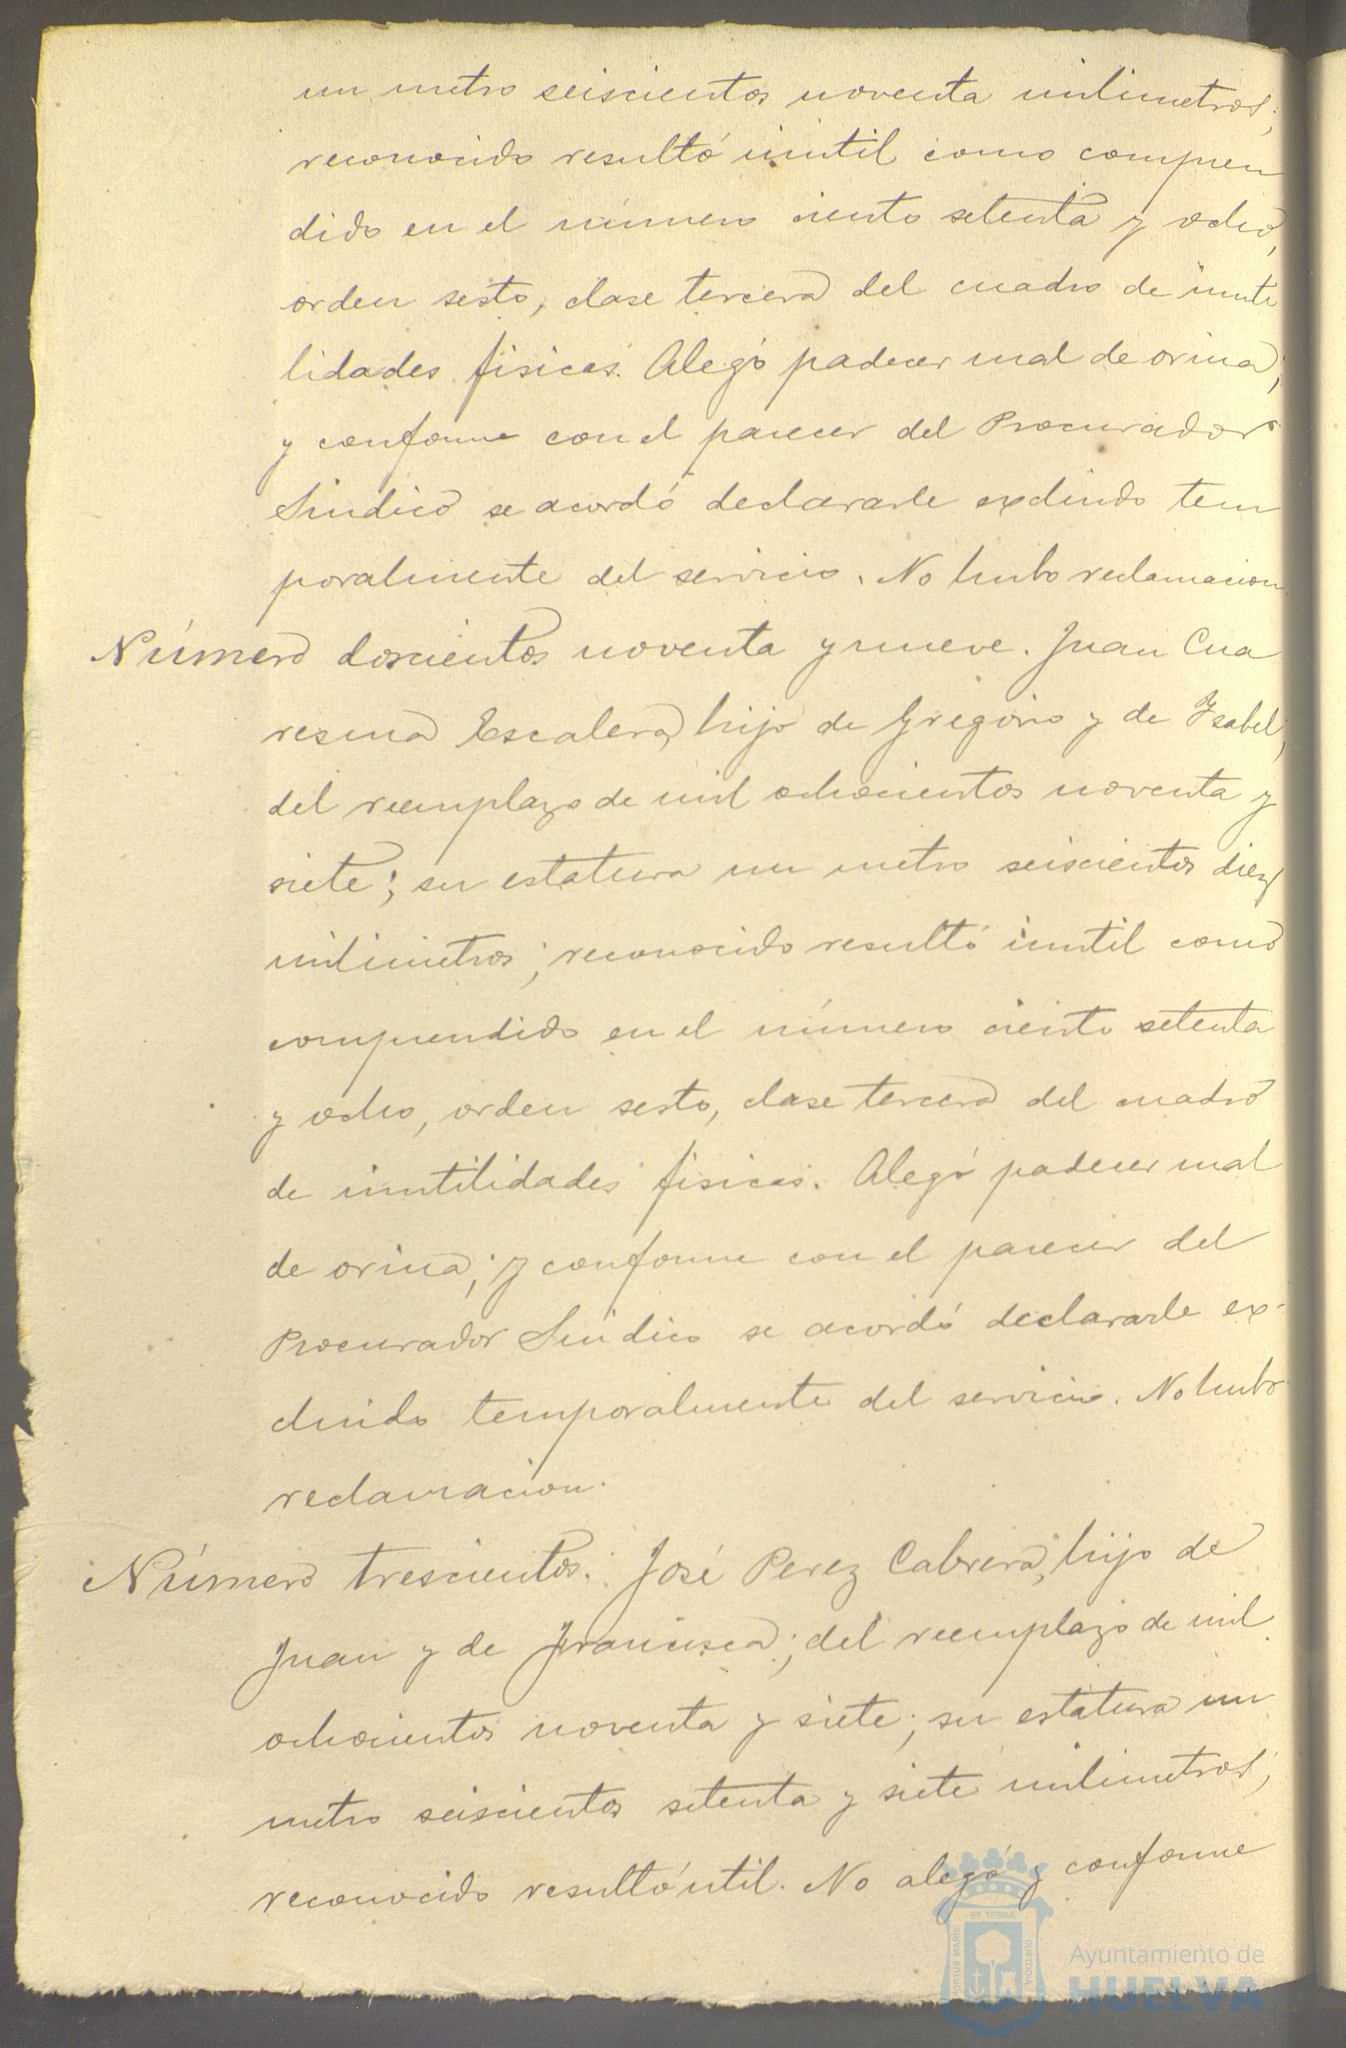 un metro seiscientos noventa milimetros;
reconocido resultó inutil como compren
dido en el número ciento setenta y ocho,
orden sesto, clase tercera del cuadro de inuti
lidades fisicas. Alegó padecer mal de orina;
y conforme con el parecer del Procurador
Sindico se acordó declararle excluido tem
poralmente del servicio. No hubo reclamacion
Número doscientos noventa y nueve. Juan Cua
resma Escalera, hijo de Gregorio y de Ysabel,
del reemplazo de mil ochocientos noventa y
siete; su estatura un metro seiscientos diez
milimetros; reconocido resultó inutil como
comprendido en el número ciento setenta
y ocho, orden sesto, clase tercera del cuadro
de inutilidades fisicas. Alegó padecer mal
de orina; y conforme con el parecer del
Procurador Sindico se acordó declararle ex-
cluido temporalmente del servicio. No hubo
reclamacion.
Número trescientos. José Perez Cabrera, hijo de
Juan y de Francisca; del reemplazo de mil
ochocientos noventa y siete; su estatura un
metro seiscientos setenta y siete milimetros;
reconocido resultó útil. No alegó y conforme
ET TERRÆ
PORTUS MARIS
CUSTODIA
Ayuntamiento de
HUELVA